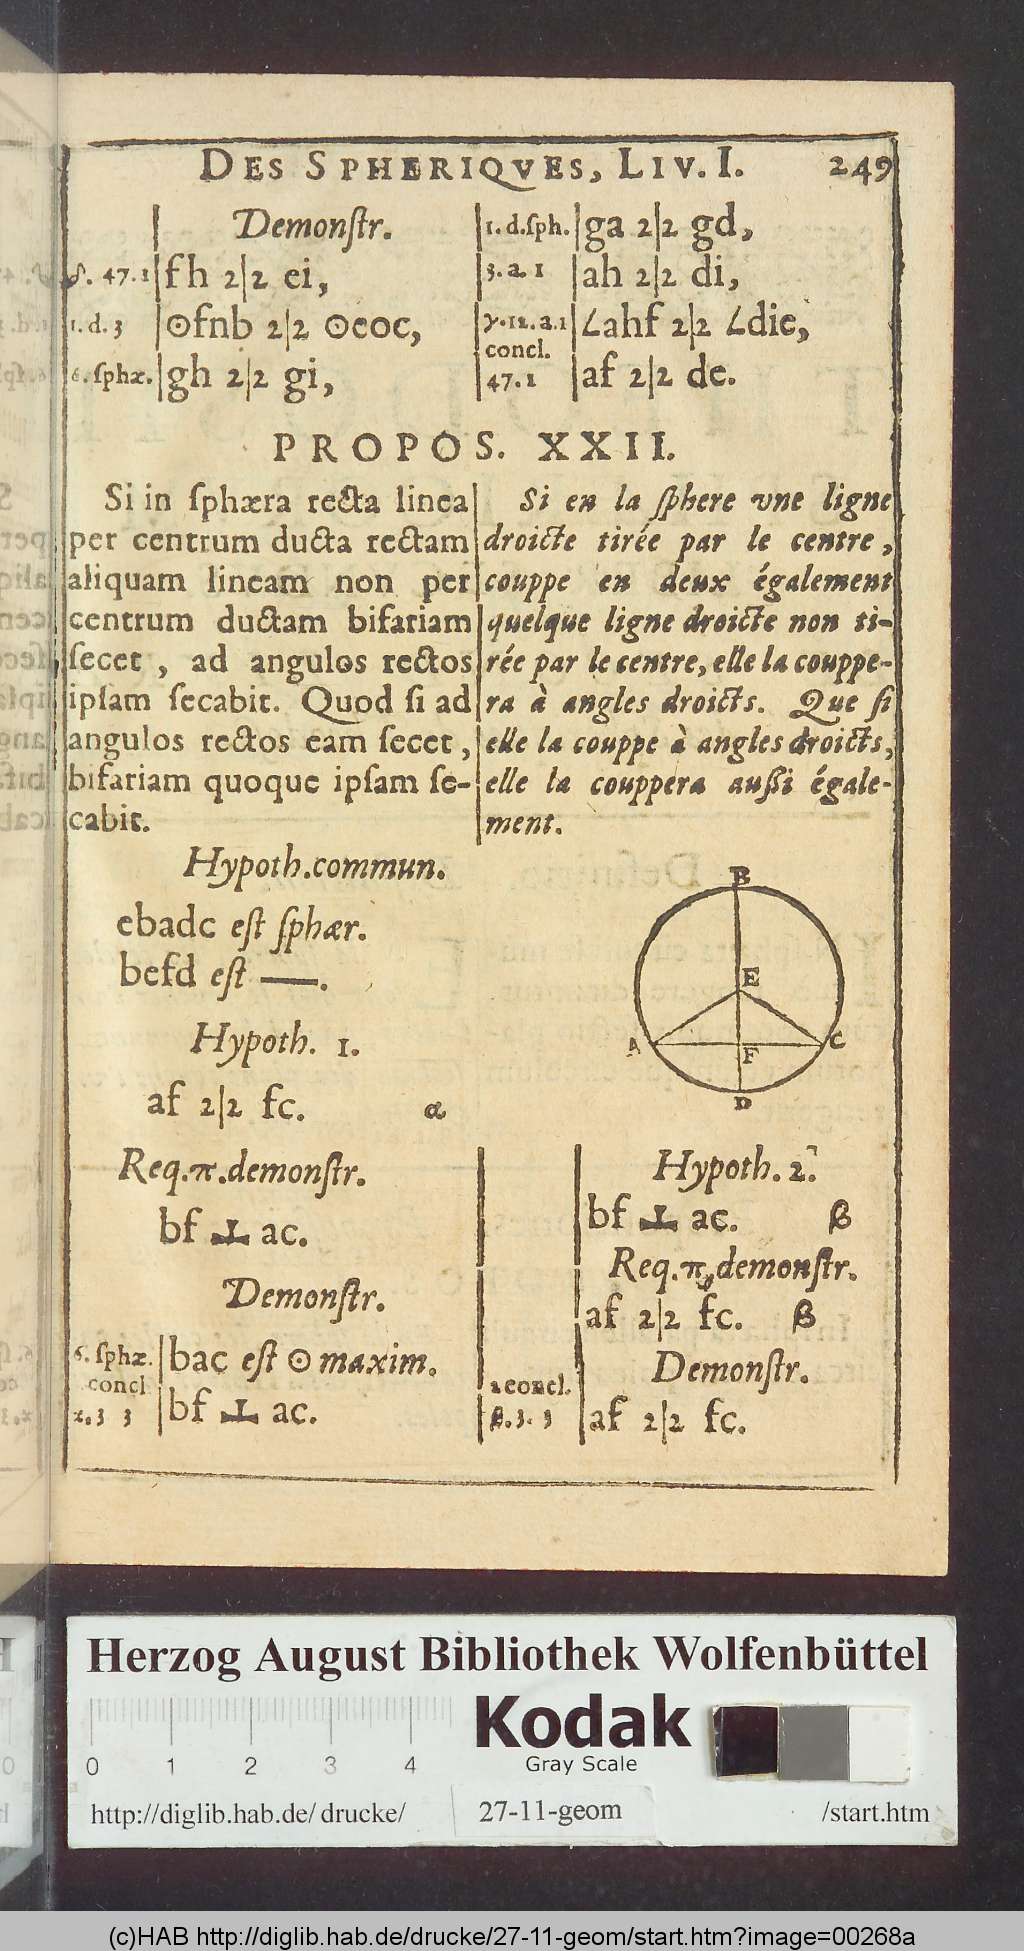 DES SPHERIQVES, LIV. I. 249
Demonſtr.
47.1 fh 2|2 ei,
1. d. 3 ⊙fnb 2|2 ⊙eoc,
6. ſphæ. gh 2|2 gi,
1. d. ſph. ga 2|2 gd,
3. a. 1 ah 2|2 di,
γ. 12. a. 1 ∠ahf 2|2 ∠die,
concl.
47. 1 af 2|2 de.
PROPOS. XXII.
Si in ſphæra recta linea
per centrum ducta rectam
aliquam lineam non per
centrum ductam bifariam
ſecet, ad angulos rectos
ipſam ſecabit. Quod ſi ad
angulos rectos eam ſecet,
bifariam quoque ipſam ſe-
cabit.
Si en la ſphere vne ligne
droicte tirée par le centre,
couppe en deux également
quelque ligne droicte non ti-
rée par le centre, elle la couppe-
ra à angles droicts. Que ſi
elle la couppe à angles droicts,
elle la couppera auſſi égale-
ment.
Hypoth. commun.
ebadc eſt ſphær.
befd eſt —.
Hypoth. 1.
af 2|2 fc. α
B
E
A F C
D
Req. π. demonſtr.
bf ⊥ ac.
Demonſtr.
6. ſphæ. bac eſt ⊙ maxim.
concl
3 3 bf ⊥ ac.
Hypoth. 2.
bf ⊥ ac. β
Req. π. demonſtr.
af 2|2 fc. β
Demonſtr.
2 concl.
β. 3. 3 af 2|2 fc.
Herzog August Bibliothek Wolfenbüttel
Kodak
Gray Scale
0 1 2 3 4
http://diglib.hab.de/drucke/ 27-11-geom /start.htm
(c)HAB http://diglib.hab.de/drucke/27-11-geom/start.htm?image=00268a